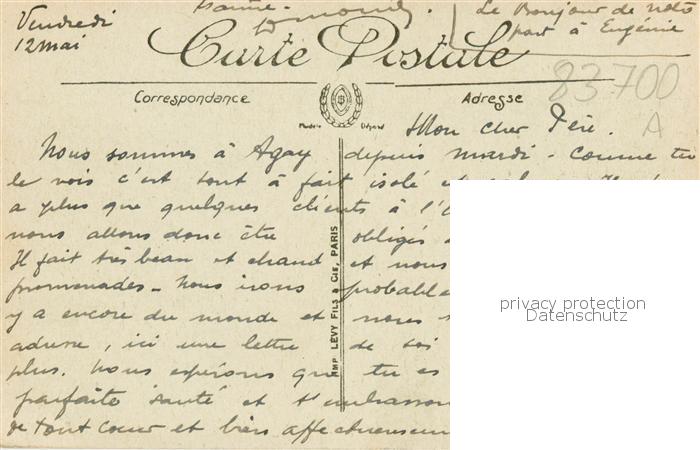 Vendredi
12 mai
Le Bonjour de notre
part à Eugénie
Carte Postale
83700
A
Correspondance
Adresse
Modèle Déposé
Mon cher Père.
Nous sommes à Agay depuis mardi - Comme tu
le vois c'est tout à fait isolé et
a plus que quelques clients à l'
nous allons donc être obligés
Il fait très beau et chaud et nous
promenades - Nous irons probable
y a encore du monde et nous
adresse, ici une lettre de toi
plus. Nous espérons que tu es
parfaite santé et t'embrasson
de tout cœur et bien affectueusem
IMP. LEVY FILS & CIE, PARIS
privacy protection
Datenschutz